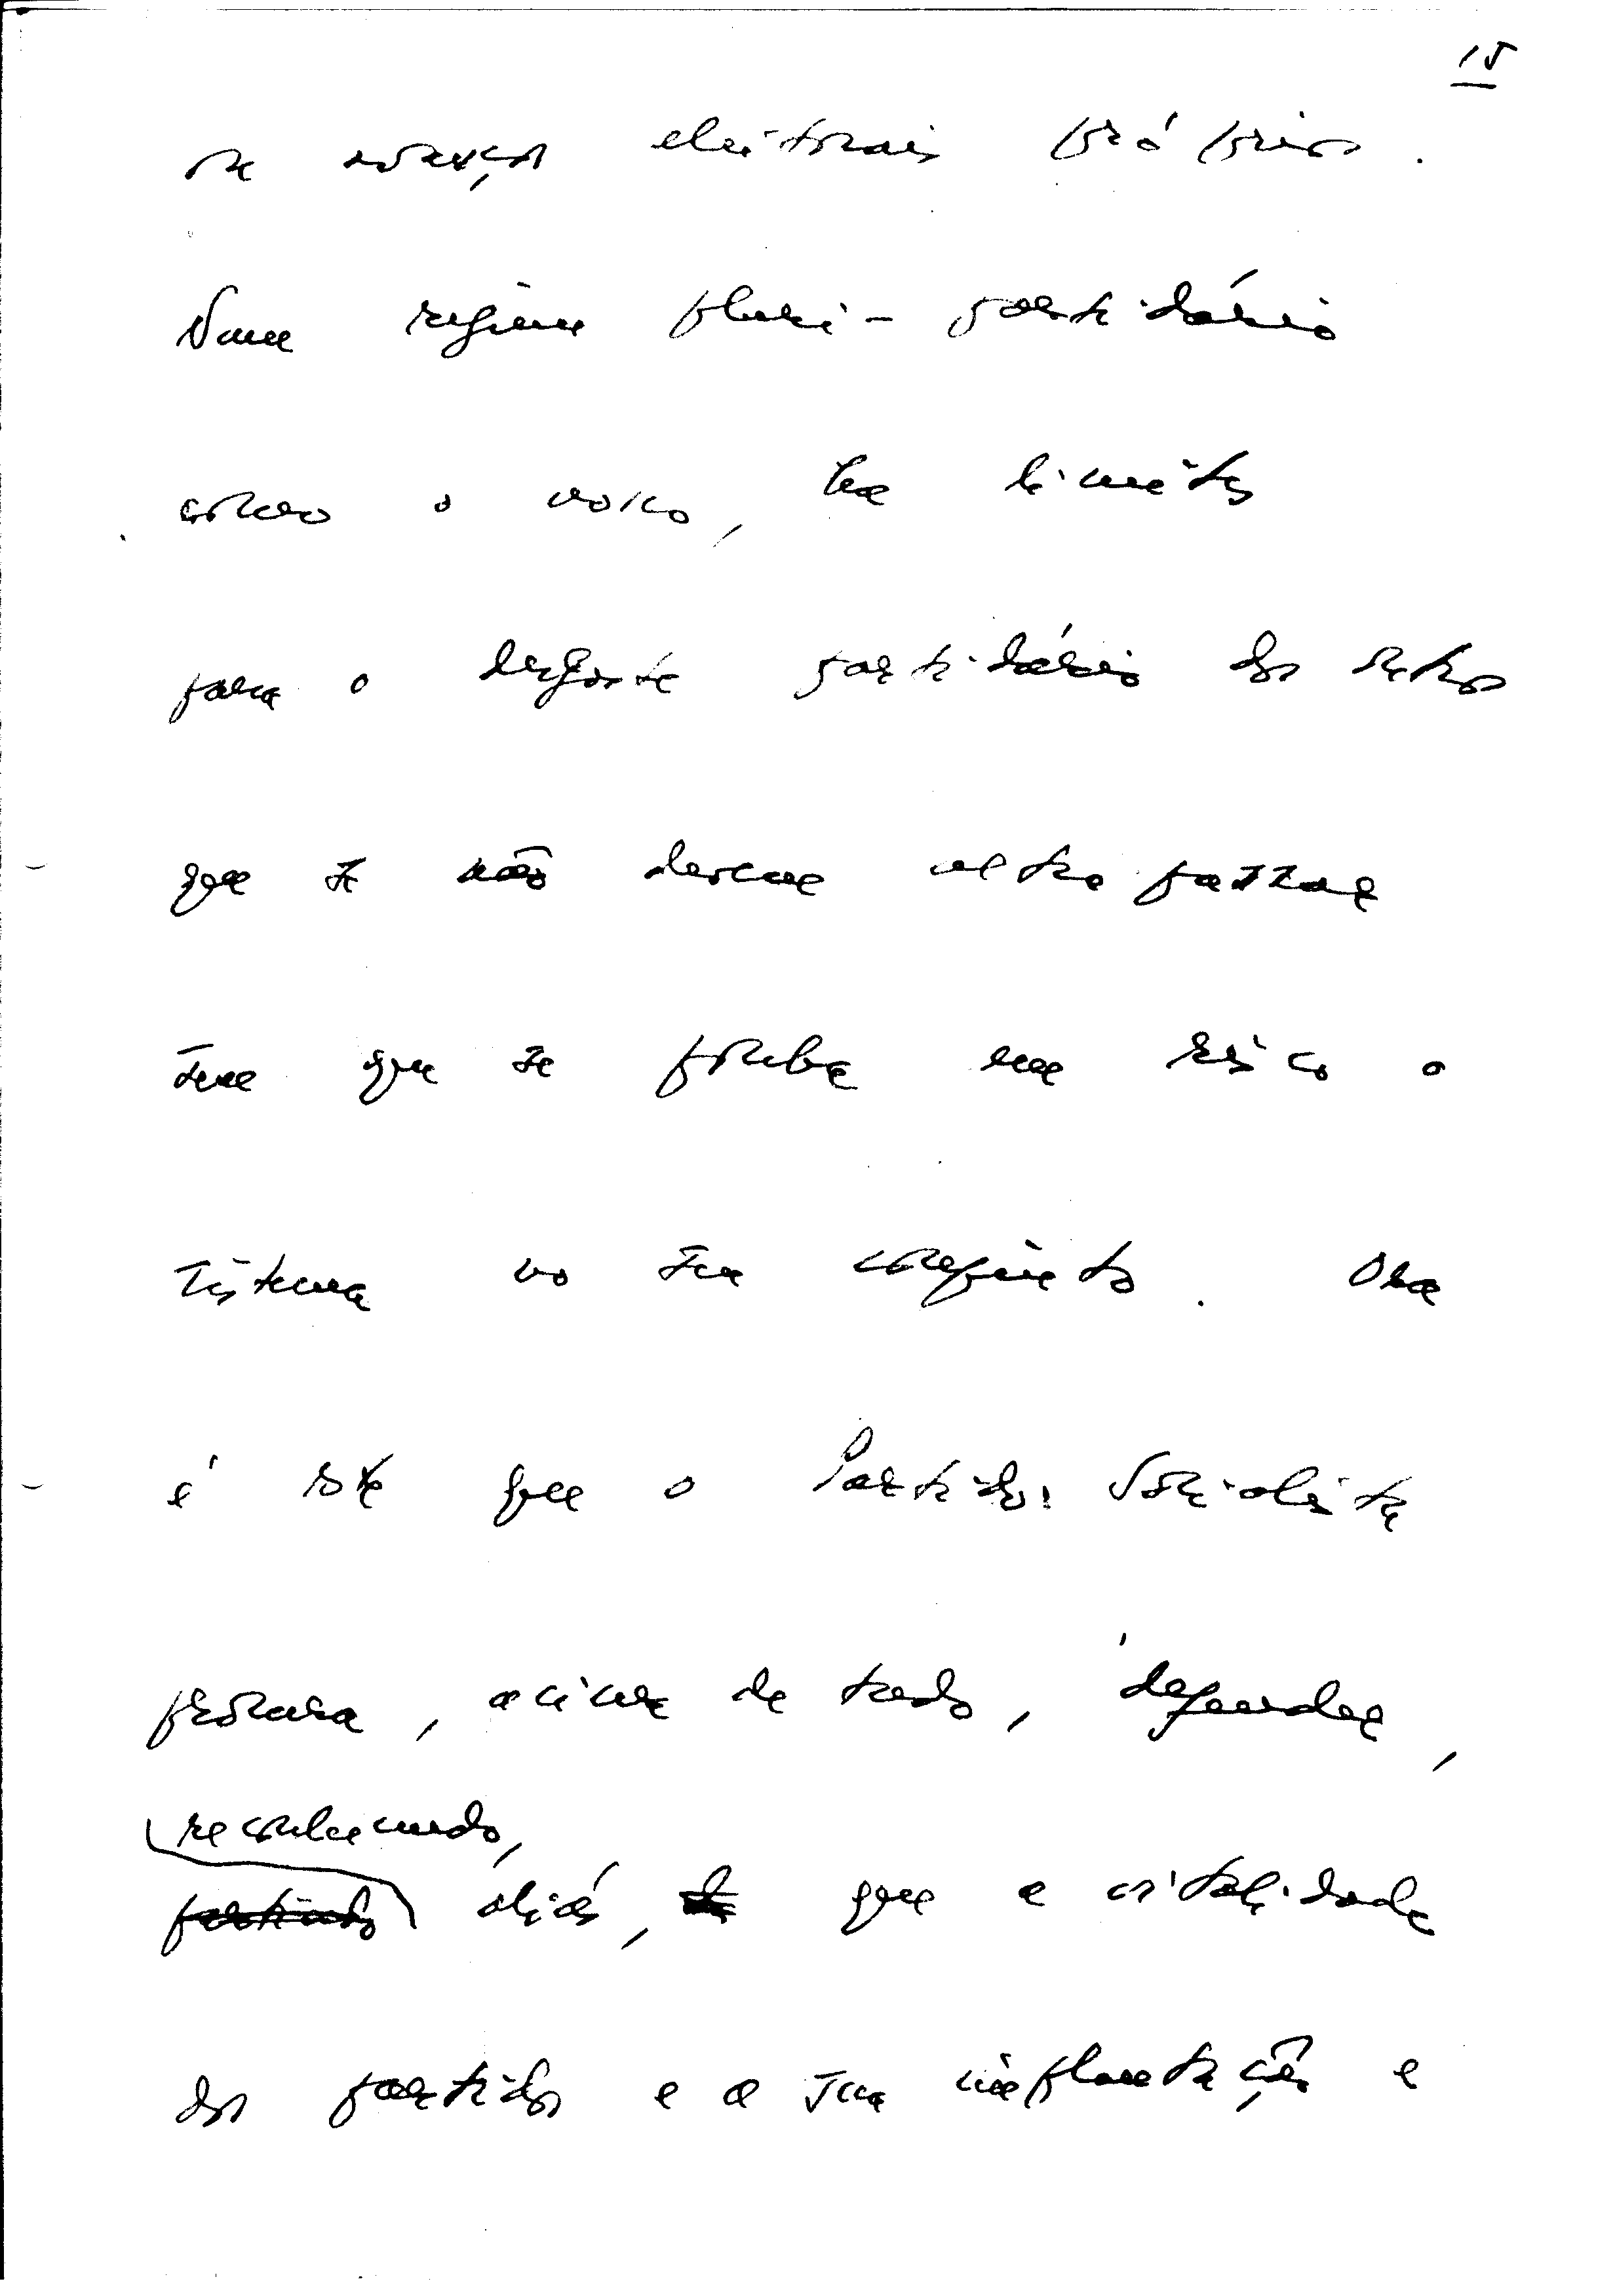 15
de avanços eleitorais próprios.
Num regime pluri-partidário
como o nosso, há limites
para o desgaste partidário dos outros
que se não devem ultrapassar
sem que se ponha em risco o
sistema no seu conjunto. Ora
é isto que o Partido Socialista
procura, acima de tudo, defender,
reconhecendo,
aliás, que a vitalidade
dos partidos e a sua implantação e